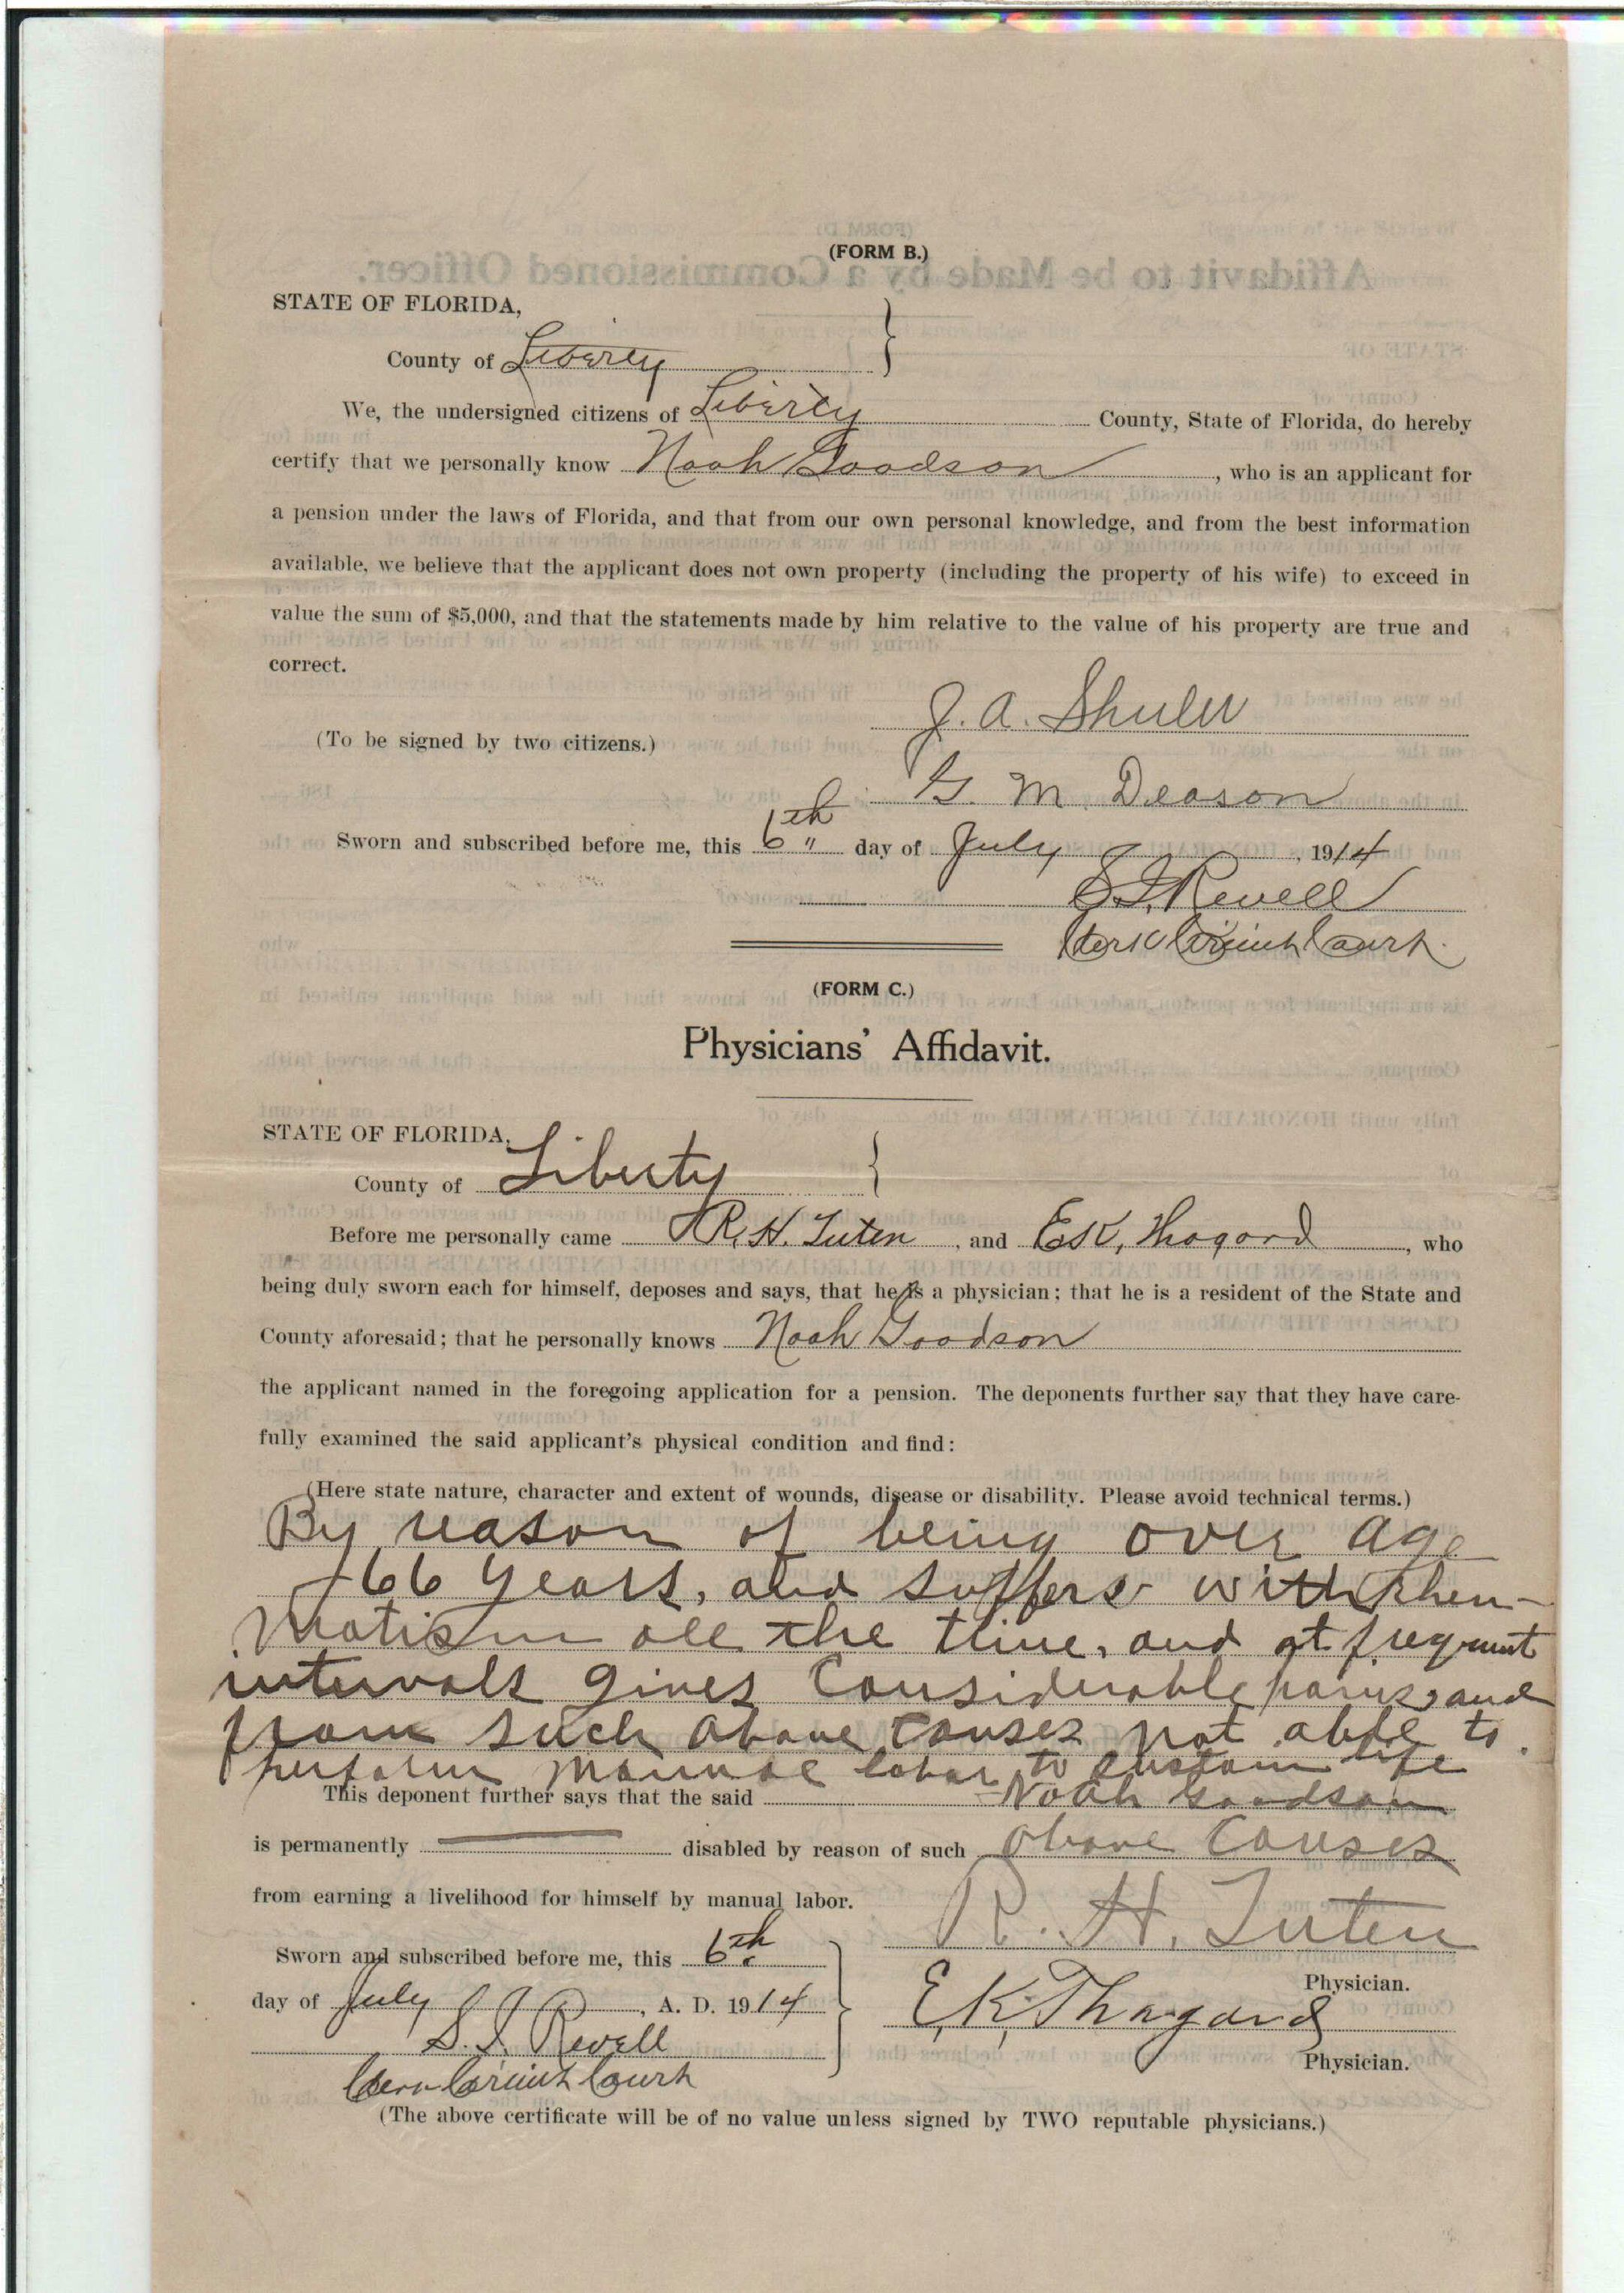 (FORM B.)
STATE OF FLORIDA,
County of Liberty
We, the undersigned citizens of Liberty County, State of Florida, do hereby
certify that we personally know Noah Goodson, who is an applicant for
a pension under the laws of Florida, and that from our own personal knowledge, and from the best information
available, we believe that the applicant does not own property (including the property of his wife) to exceed in
value the sum of $5,000, and that the statements made by him relative to the value of his property are true and
correct.
J. A. Shuler
(To be signed by two citizens.)
G. M Deason
Sworn and subscribed before me, this 6th day of July, 1914
S. I. Revell
Clerk Circuit Court.
(FORM C.)
Physicians' Affidavit.
STATE OF FLORIDA,
County of Liberty
Before me personally came R. H. Tuten, and E K, Thagard, who
being duly sworn each for himself, deposes and says, that he is a physician; that he is a resident of the State and
County aforesaid; that he personally knows Noah Goodson
the applicant named in the foregoing application for a pension. The deponents further say that they have care-
fully examined the said applicant's physical condition and find:
(Here state nature, character and extent of wounds, disease or disability. Please avoid technical terms.)
By reason of being over age
66 years, and suffers with Rheu-
matism all the time, and at frequent
intervals gives considerable pains, and
from such above causes not able to
perform manual labor to sustain life
This deponent further says that the said Noah Goodson
is permanently disabled by reason of such above causes
from earning a livelihood for himself by manual labor.
R. H. Tuten
Sworn and subscribed before me, this 6th
Physician.
day of July, A. D. 1914
E. K. Thagard
S. I. Revell
Physician.
Clerk Circuit Court
(The above certificate will be of no value unless signed by TWO reputable physicians.)